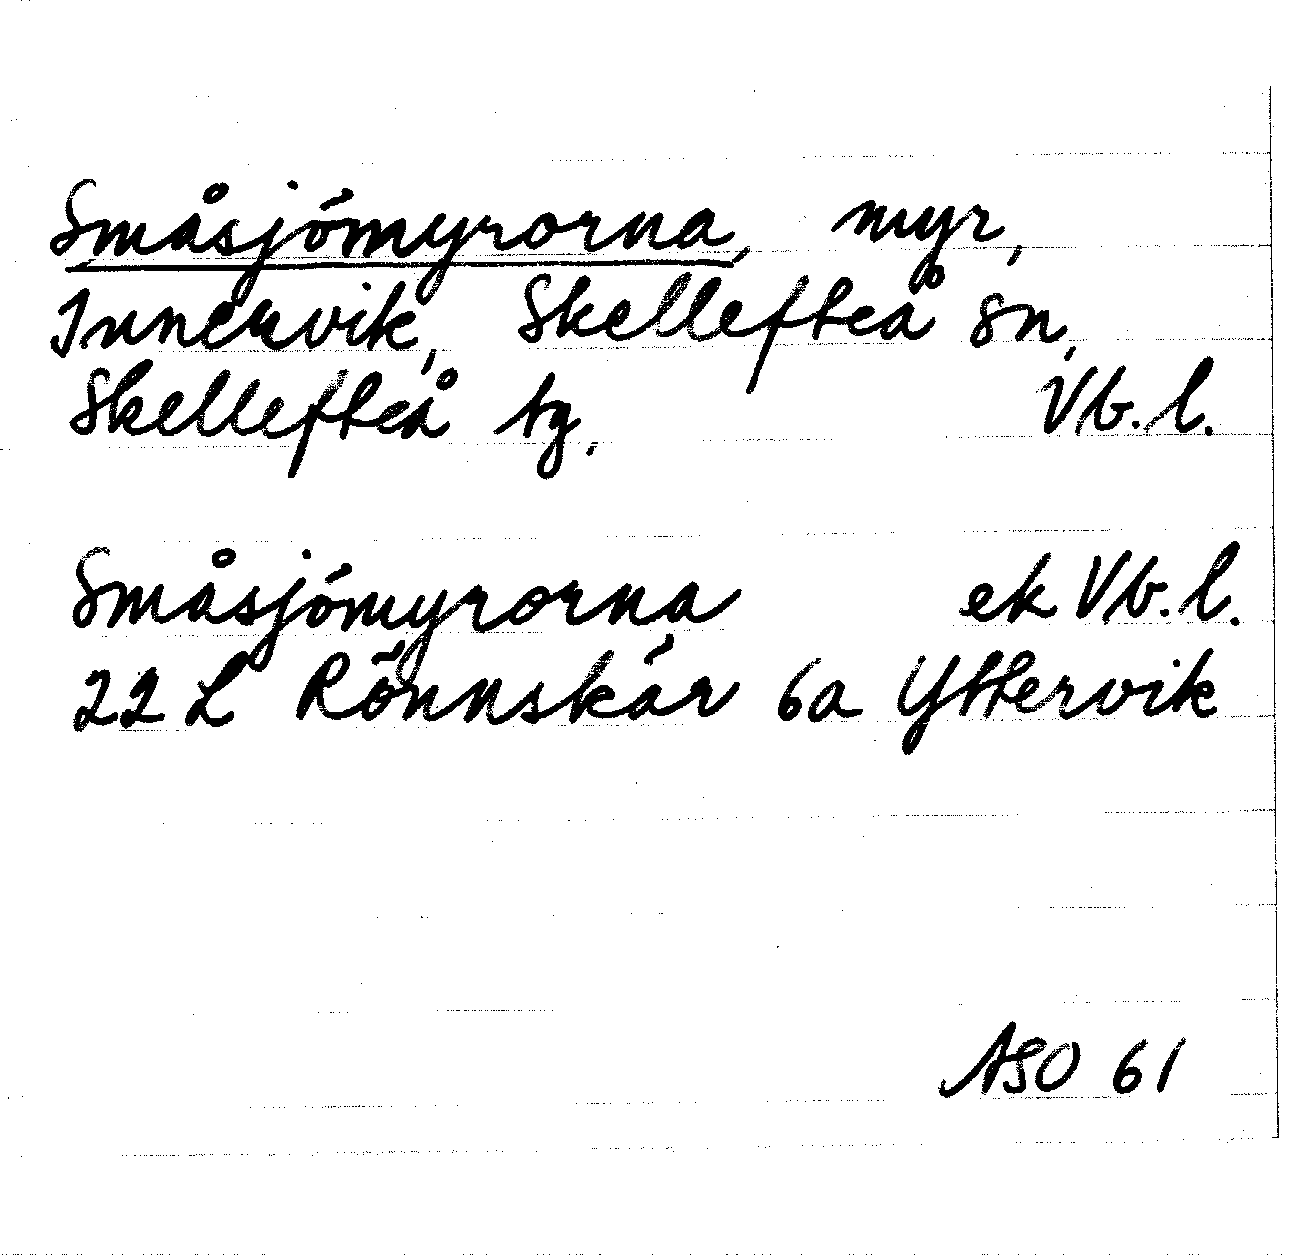 Småsjömyrorna, myr,
Innervik, Skellefteå sn,
Skellefteå tg, Vb.l.
Småsjömyrorna ek Vb.l.
22 L Rönnskär 6a Yttervik
ASO 61